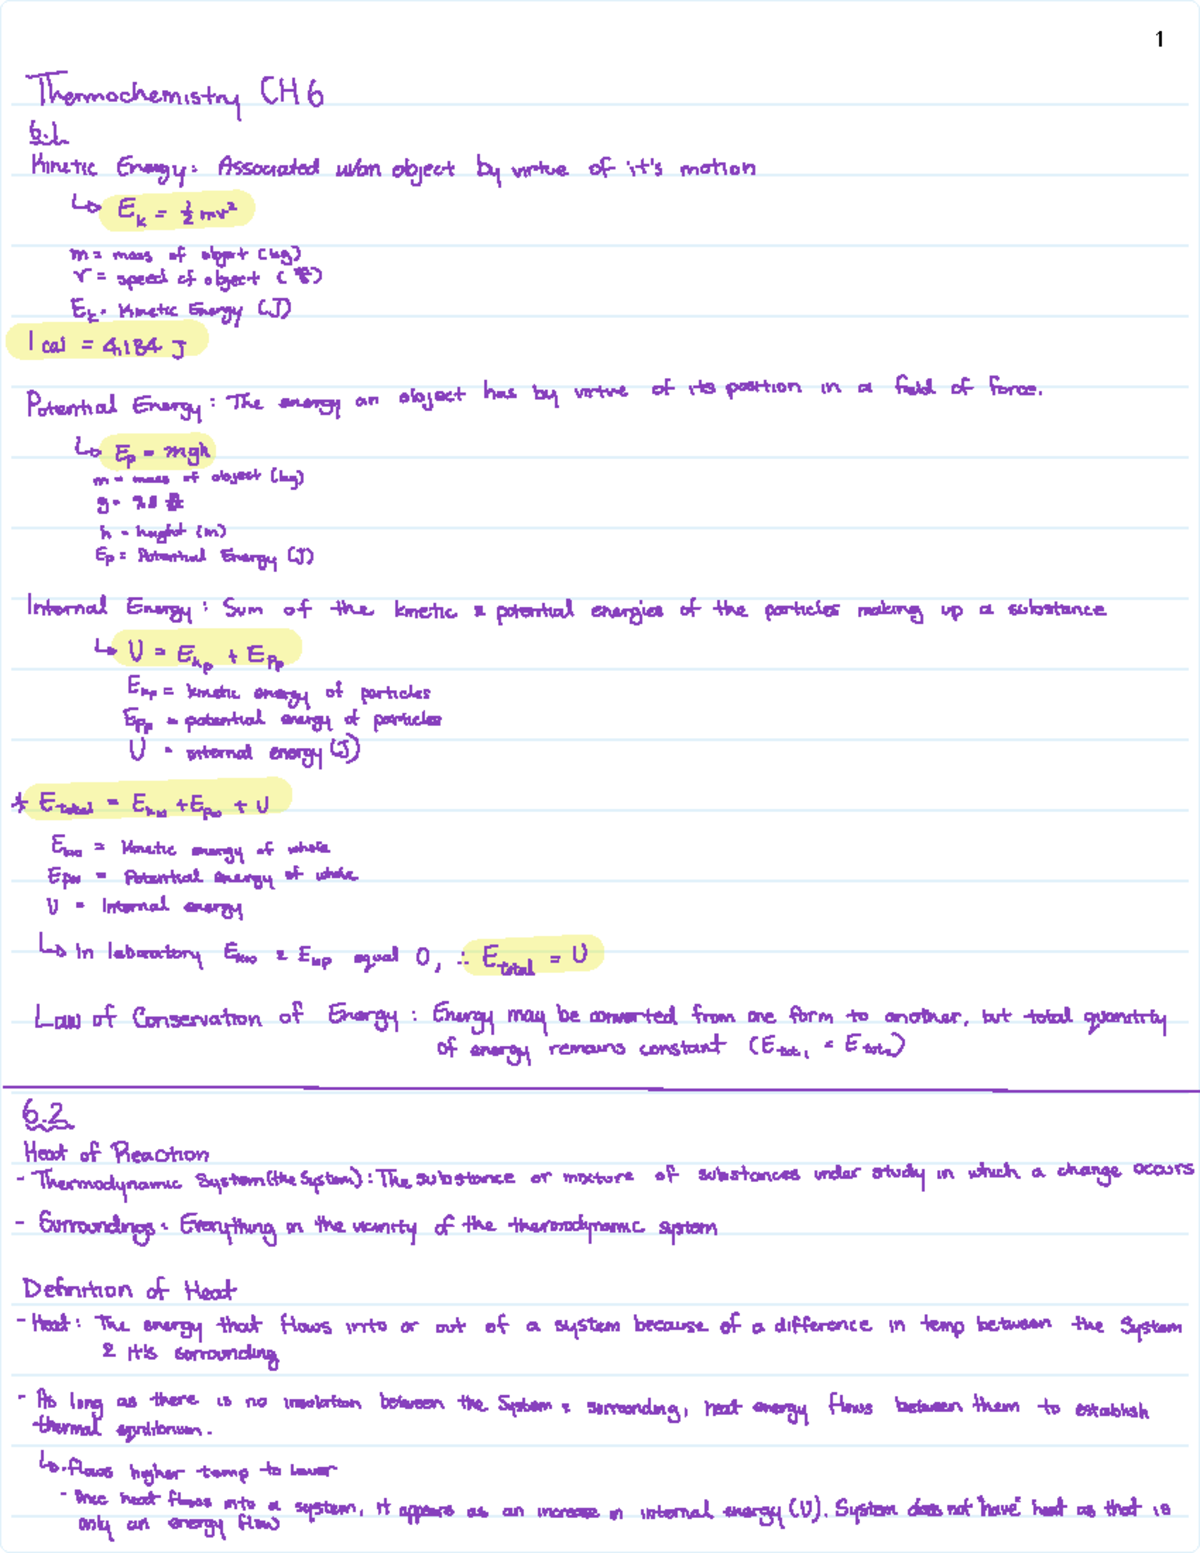 1
Thermochemistry CH 6
6.1
Kinetic Energy: Associated w/an object by virtue of it's motion
↳ Eₖ = ½ mv²
m = mass of object (kg)
v = speed of object (m/s)
Eₖ = Kinetic Energy (J)
1 cal = 4.184 J
Potential Energy: The energy an object has by virtue of its position in a field of force.
↳ Eₚ = mgh
m = mass of object (kg)
g = 9.8
h = height (m)
Ep = Potential Energy (J)
Internal Energy: Sum of the kinetic & potential energies of the particles making up a substance
↳ U = E_kp + E_pp
E_kp = kinetic energy of particles
E_pp = potential energy of particles
U = internal energy (J)
* E_total = E_kw + E_pw + U
E_kw = Kinetic energy of whole
E_pw = Potential energy of whole
U = Internal energy
↳ In laboratory E_kw & E_wp equal 0, ∴ E_total = U
Law of Conservation of Energy: Energy may be converted from one form to another, but total quantity
of energy remains constant (E_tot₁ = E_tot₂)
6.2
Heat of Reaction
- Thermodynamic System (the System): The substance or mixture of substances under study in which a change occurs
- Surroundings: Everything in the vicinity of the thermodynamic system
Definition of Heat
- Heat: The energy that flows into or out of a system because of a difference in temp between the System
& it's surrounding
- As long as there is no insolation between the System & surrounding, heat energy flows between them to establish
thermal equilibrium.
↳ . flows higher temp to lower
- Once heat flows into a system, it appears as an increase in internal energy (U). System does not "have" heat as that is
only an energy flow